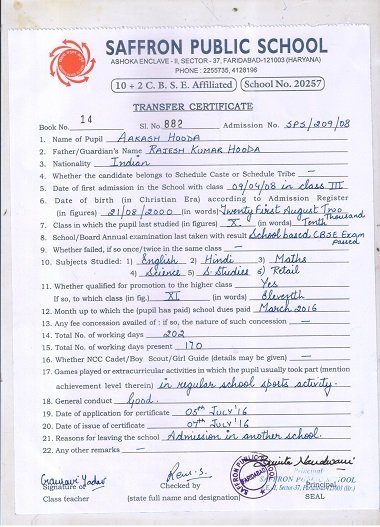 SAFFRON PUBLIC SCHOOL
ASHOKA ENCLAVE - II, SECTOR - 37, FARIDABAD-121003 (HARYANA)
PHONE : 2255735, 4128196
10 + 2 C. B. S. E. Affiliated School No. 20257
TRANSFER CERTIFICATE
Book No. 14 Sl. No. 882 Admission No. SPS/209/08
1. Name of Pupil AAKASH HOODA
2. Father/Guardian's Name RAJESH KUMAR HOODA
3. Nationality Indian
4. Whether the candidate belongs to Schedule Caste or Schedule Tribe —
5. Date of first admission in the School with class 09/04/08 in class III
6. Date of birth (in Christian Era) according to Admission Register
(in figures) 21/08/2000 (in words) Twenty First August Two Thousand
7. Class in which the pupil last studied (in figures) X (in words) Tenth
8. School/Board Annual examination last taken with result School based CBSE Exam passed
9. Whether failed, if so once/twice in the same class —
10. Subjects Studied: 1) English 2) Hindi 3) Maths
4) Science 5) S. Studies 6) Retail
11. Whether qualified for promotion to the higher class Yes
If so, to which class (in fig.) XI (in words) Eleventh
12. Month up to which the (pupil has paid) school dues paid March 2016
13. Any fee concession availed of : if so, the nature of such concession —
14. Total No. of working days 202
15. Total No. of working days present 170
16. Whether NCC Cadet/Boy Scout/Girl Guide (details may be given) —
17. Games played or extracurricular activities in which the pupil usually took part (mention
achievement level therein) in regular school sports activity.
18. General conduct Good.
19. Date of application for certificate 05th JULY'16
20. Date of issue of certificate 07th JULY'16
21. Reasons for leaving the school Admission in another school.
22. Any other remarks —
Signature of Checked by Principal
Class teacher (state full name and designation) SEAL
SAFFRON PUBLIC SCHOOL
FARIDABAD